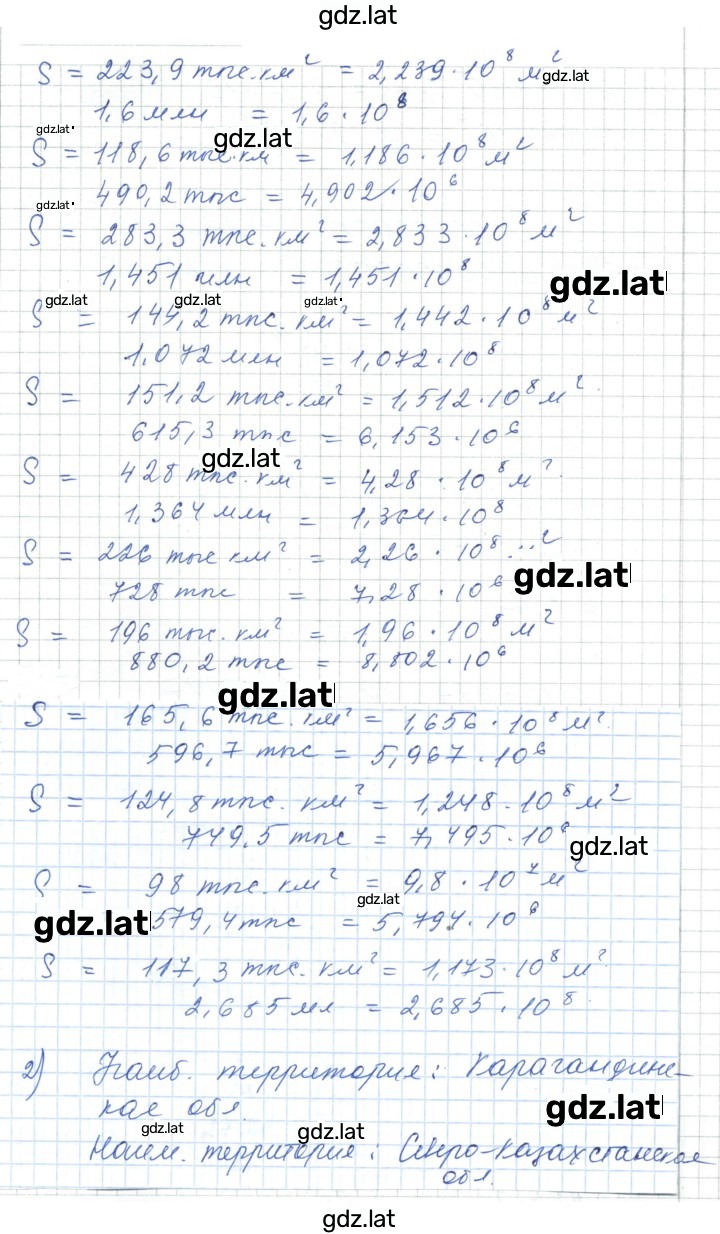 gdz.lat
S = 223,9 тыс.км² = 2,239·10⁸ м²
gdz.lat
1,6 млн = 1,6·10⁸
gdz.lat
gdz.lat
S = 118,6 тыс.км = 1,186·10⁸ м²
490,2 тыс = 4,902·10⁶
gdz.lat
S = 283,3 тыс.км² = 2,833·10⁸ м²
1,451 млн = 1,451·10⁸
gdz.lat
gdz.lat gdz.lat gdz.lat
S = 144,2 тыс.км² = 1,442·10⁸ м²
1,072 млн = 1,072·10⁸
S = 151,2 тыс.км² = 1,512·10⁸ м²
615,3 тыс = 6,153·10⁶
gdz.lat
S = 428 тыс.км² = 4,28·10⁸ м²
1,364 млн = 1,364·10⁸
S = 226 тыс км² = 2,26·10⁸ м²
gdz.lat
728 тыс = 7,28·10⁶
S = 196 тыс.км² = 1,96·10⁸ м²
880,2 тыс = 8,802·10⁶
gdz.lat
S = 165,6 тыс.км² = 1,656·10⁸ м²
596,7 тыс = 5,967·10⁶
S = 124,8 тыс.км² = 1,248·10⁸ м²
749,5 тыс = 7,495·10⁶
gdz.lat
S = 98 тыс.км² = 9,8·10⁷ м²
gdz.lat
gdz.lat 579,4 тыс = 5,794·10⁶
S = 117,3 тыс.км² = 1,173·10⁸ м²
2,685 мл = 2,685·10⁸
2) Наиб. территория: Карагандинс-
кая обл.
gdz.lat
gdz.lat gdz.lat
Наим. территория: Северо-Казахстанская
обл.
gdz.lat